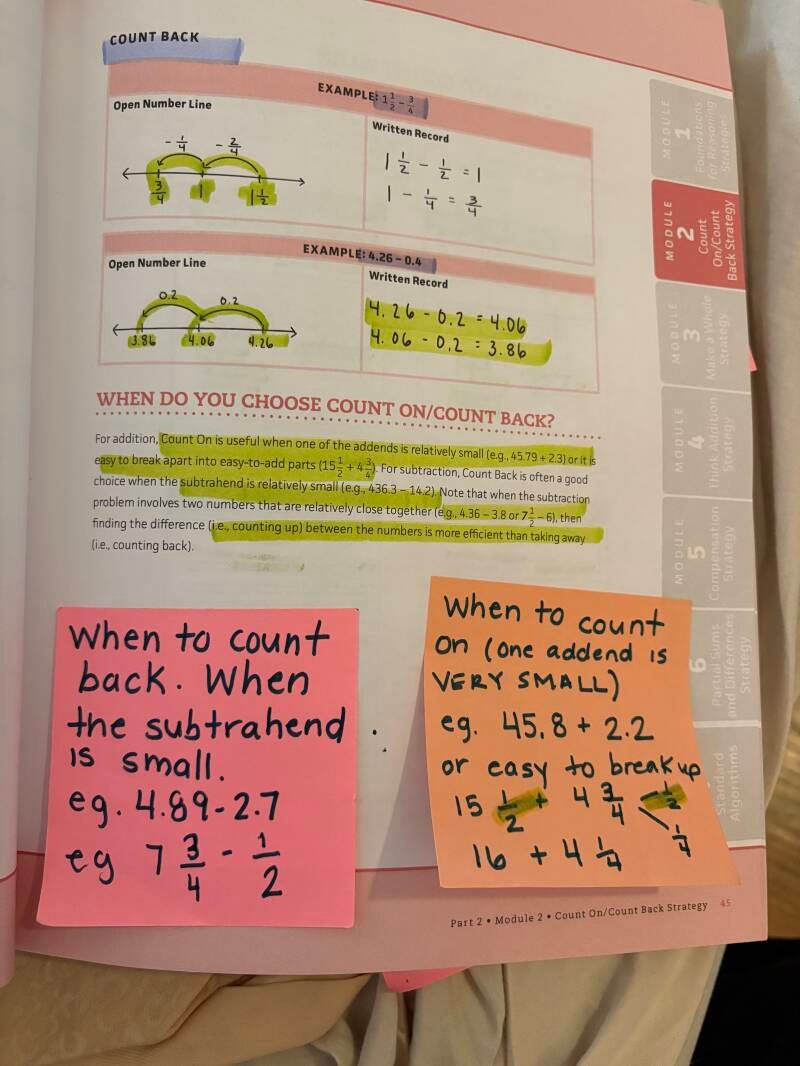 COUNT BACK
EXAMPLE: 1 1/2 – 3/4
Open Number Line
- 1/4 - 2/4
3/4 1 1 1/2
Written Record
1 1/2 - 1/2 = 1
1 - 1/4 = 3/4
EXAMPLE: 4.26 – 0.4
Open Number Line
0.2 0.2
3.86 4.06 4.26
Written Record
4.26 - 0.2 = 4.06
4.06 - 0.2 = 3.86
WHEN DO YOU CHOOSE COUNT ON/COUNT BACK?
For addition, Count On is useful when one of the addends is relatively small (e.g., 45.79 + 2.3) or it is
easy to break apart into easy-to-add parts (15 1/2 + 4 3/4). For subtraction, Count Back is often a good
choice when the subtrahend is relatively small (e.g., 436.3 – 14.2). Note that when the subtraction
problem involves two numbers that are relatively close together (e.g., 4.36 – 3.8 or 7 1/2 – 6), then
finding the difference (i.e., counting up) between the numbers is more efficient than taking away
(i.e., counting back).
When to count
back. When
the subtrahend
is small.
eg. 4.89-2.7
eg 7 3/4 - 1/2
When to count
on (one addend is
VERY SMALL)
eg. 45.8 + 2.2
or easy to break up
15 1/2 + 4 3/4 1/2
1/4
16 + 4 1/4
Part 2 • Module 2 • Count On/Count Back Strategy 45
MODULE
1
Foundations
for Reasoning
Strategies
MODULE
2
Count
On/Count
Back Strategy
MODULE
3
Make a Whole
Strategy
MODULE
4
Think Addition
Strategy
MODULE
5
Compensation
Strategy
6
Partial Sums
and Differences
Strategy
Standard
Algorithms